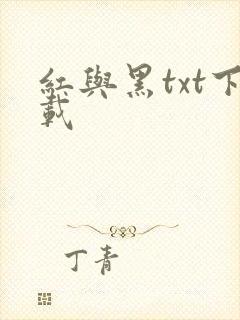 紅與黑txt下
載
丁青